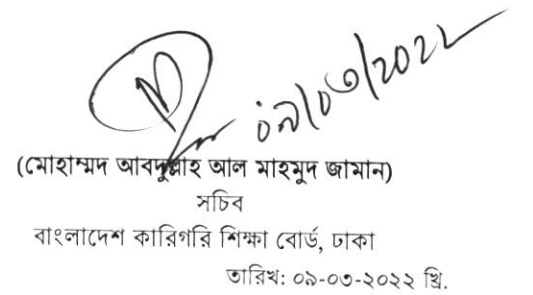 ০৯/০৩/২০২২
(মোহাম্মদ আবদুল্লাহ আল মাহমুদ জামান)
সচিব
বাংলাদেশ কারিগরি শিক্ষা বোর্ড, ঢাকা
তারিখ: ০৯-০৩-২০২২ খ্রি.